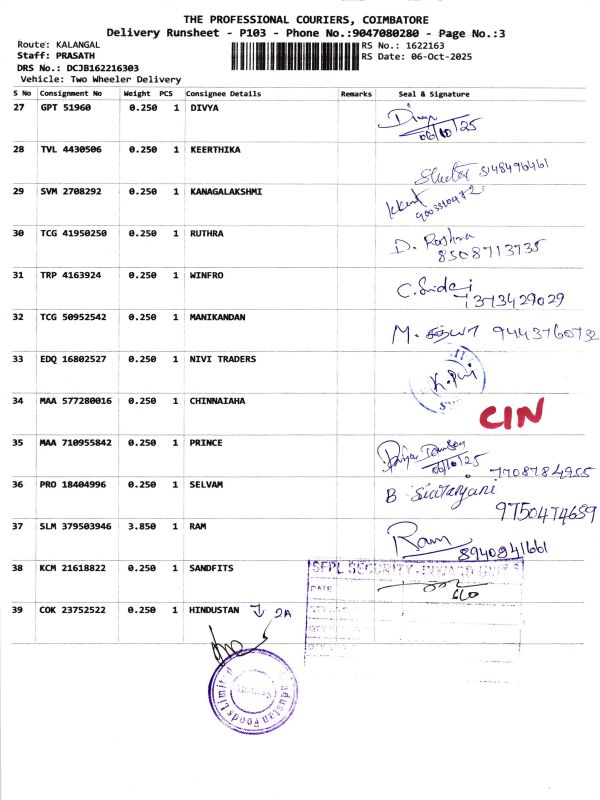 THE PROFESSIONAL COURIERS, COIMBATORE
Delivery Runsheet - P103 - Phone No.:9047080280 - Page No.:3
Route: KALANGAL RS No.: 1622163
Staff: PRASATH RS Date: 06-Oct-2025
DRS No.: DCJB162216303
Vehicle: Two Wheeler Delivery
S No Consignment No Weight PCS Consignee Details Remarks Seal & Signature
27 GPT 51960 0.250 1 DIVYA
06/10/25
28 TVL 4430506 0.250 1 KEERTHIKA
29 SVM 2708292 0.250 1 KANAGALAKSHMI
30 TCG 41950250 0.250 1 RUTHRA D.
8508713735
31 TRP 4163924 0.250 1 WINFRO C. Sridej
7373429029
32 TCG 50952542 0.250 1 MANIKANDAN M. சத்யா 9443760732
33 EDQ 16802527 0.250 1 NIVI TRADERS
34 MAA 577280016 0.250 1 CHINNAIAHA CIN
35 MAA 710955842 0.250 1 PRINCE
06/10/25 7708784955
36 PRO 18404996 0.250 1 SELVAM B
9750474659
37 SLM 379503946 3.850 1 RAM Ram
8940841661
38 KCM 21618822 0.250 1 SANDFITS SFPL SECURITY-INWARD UNIT
DATE
39 COK 23752522 0.250 1 HINDUSTAN 2A